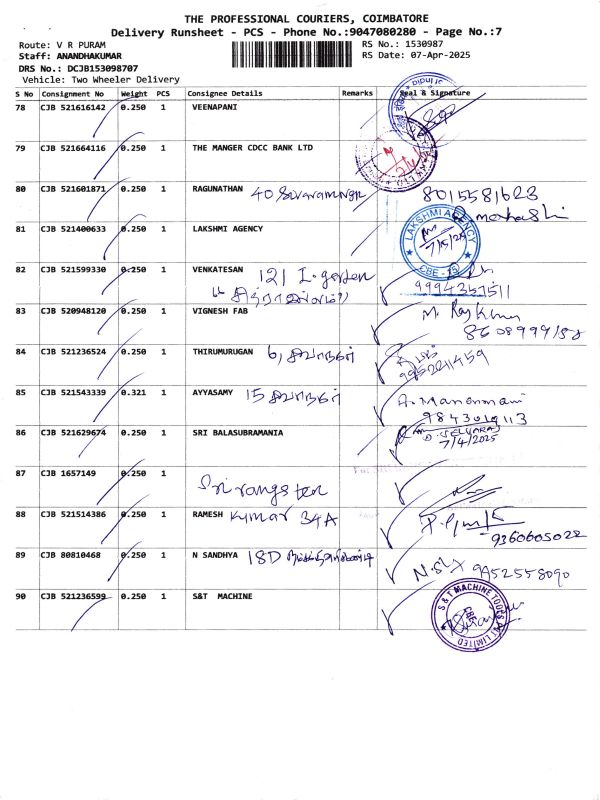 THE PROFESSIONAL COURIERS, COIMBATORE
Delivery Runsheet - PCS - Phone No.:9047080280 - Page No.:7
Route: V R PURAM RS No.: 1530987
Staff: ANANDHAKUMAR RS Date: 07-Apr-2025
DRS No.: DCJB153098707
Vehicle: Two Wheeler Delivery
S No Consignment No Weight PCS Consignee Details Remarks Seal & Signature
78 CJB 521616142 0.250 1 VEENAPANI
79 CJB 521664116 0.250 1 THE MANGER CDCC BANK LTD
80 CJB 521601871 0.250 1 RAGUNATHAN 40
81 CJB 521400633 0.250 1 LAKSHMI AGENCY LAKSHMI AGENCY CBE - 15
82 CJB 521599330 0.250 1 VENKATESAN 121
83 CJB 520948120 0.250 1 VIGNESH FAB M. Raj Kumar
84 CJB 521236524 0.250 1 THIRUMURUGAN 6,
85 CJB 521543339 0.321 1 AYYASAMY 15 A. Manonmani
9843019113
86 CJB 521629674 0.250 1 SRI BALASUBRAMANIA D. SELVARAJ
7/4/2025
87 CJB 1657149 0.250 1
88 CJB 521514386 0.250 1 RAMESH Kumar 34A
9360605022
89 CJB 80810468 0.250 1 N SANDHYA 18D 9452558090
90 CJB 521236599 0.250 1 S&T MACHINE S & T MACHINE TOOLS PVT LIMITED CBE